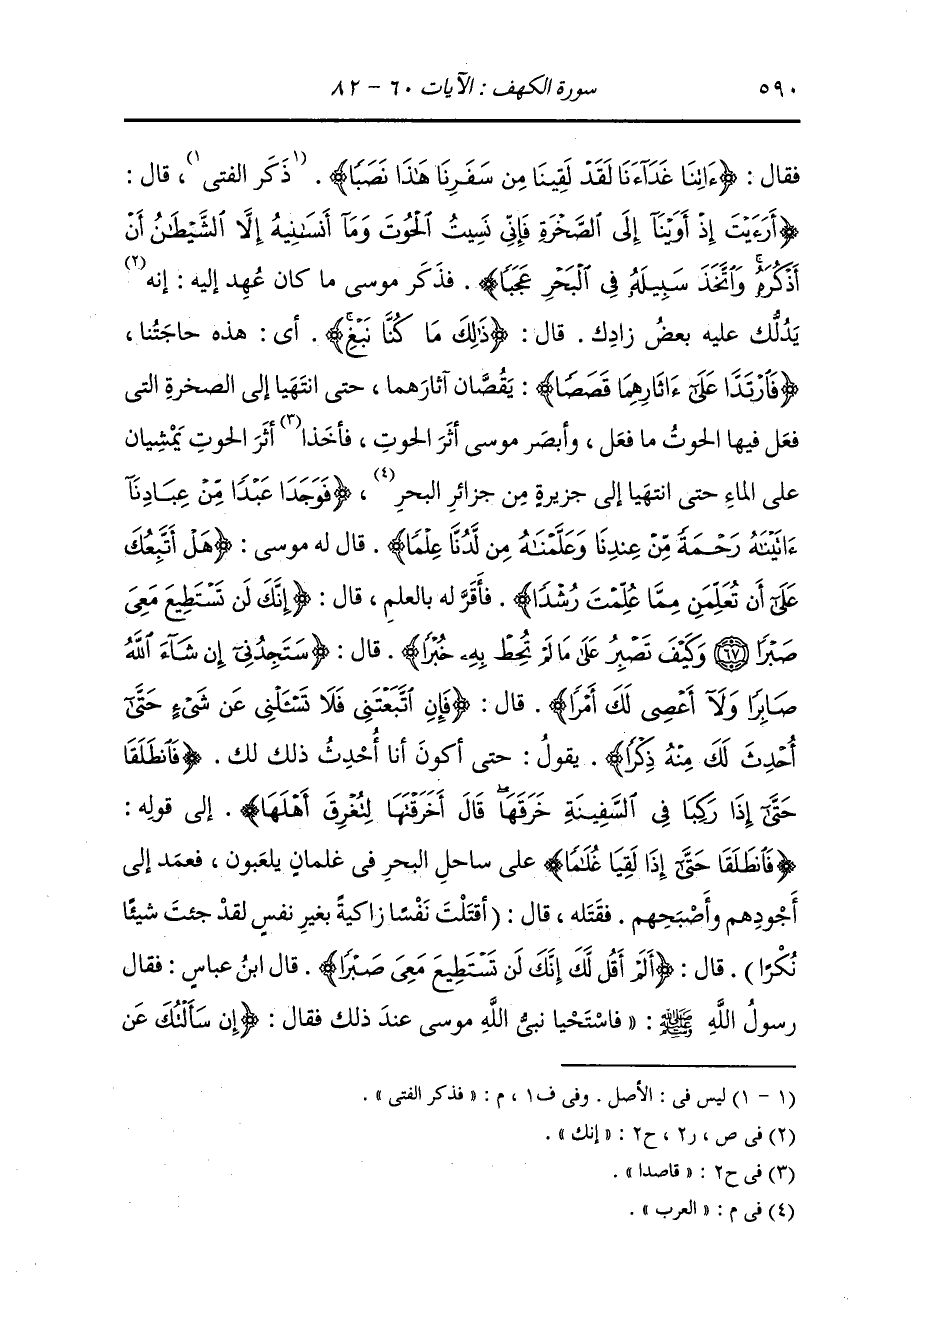 ٥٩٠ سورة الكهف : الآيات ٦٠ - ٨٢
فقال : ﴿ءَاتِنَا غَدَآءَنَا لَقَدۡ لَقِينَا مِن سَفَرِنَا هَٰذَا نَصَبٗا﴾ . (١ذَكَر الفتى١)، قال :
﴿أَرَءَيۡتَ إِذۡ أَوَيۡنَآ إِلَى ٱلصَّخۡرَةِ فَإِنِّي نَسِيتُ ٱلۡحُوتَ وَمَآ أَنسَىٰنِيهُ إِلَّا ٱلشَّيۡطَٰنُ أَنۡ
أَذۡكُرَهُۥۚ وَٱتَّخَذَ سَبِيلَهُۥ فِي ٱلۡبَحۡرِ عَجَبٗا﴾ . فذَكَر موسى ما كان عُهِد إليه : إنه(٢)
يَدُلُّك عليه بعضُ زادِك . قال : ﴿ذَٰلِكَ مَا كُنَّا نَبۡغِۚ﴾ . أى : هذه حاجَتُنا ،
﴿فَٱرۡتَدَّا عَلَىٰٓ ءَاثَارِهِمَا قَصَصٗا﴾ : يَقُصَّان آثارَهما ، حتى انتَهَيا إلى الصخرةِ التى
فعَل فيها الحوتُ ما فعَل ، وأبصَر موسى أثَرَ الحوتِ ، فأخَذا(٣) أثَرَ الحوتِ يَمْشِيان
على الماءِ حتى انتهَيا إلى جزيرةٍ مِن جزائرِ البحرِ(٤) ، ﴿فَوَجَدَا عَبۡدٗا مِّنۡ عِبَادِنَآ
ءَاتَيۡنَٰهُ رَحۡمَةٗ مِّنۡ عِندِنَا وَعَلَّمۡنَٰهُ مِن لَّدُنَّا عِلۡمٗا﴾ . قال له موسى : ﴿هَلۡ أَتَّبِعُكَ
عَلَىٰٓ أَن تُعَلِّمَنِ مِمَّا عُلِّمۡتَ رُشۡدٗا﴾ . فأَقَرَّ له بالعلمِ ، قال : ﴿إِنَّكَ لَن تَسۡتَطِيعَ مَعِيَ
صَبۡرٗا ٦٧ وَكَيۡفَ تَصۡبِرُ عَلَىٰ مَا لَمۡ تُحِطۡ بِهِۦ خُبۡرٗا﴾ . قال : ﴿سَتَجِدُنِيٓ إِن شَآءَ ٱللَّهُ
صَابِرٗا وَلَآ أَعۡصِي لَكَ أَمۡرٗا﴾ . قال : ﴿فَإِنِ ٱتَّبَعۡتَنِي فَلَا تَسۡـَٔلۡنِي عَن شَيۡءٍ حَتَّىٰٓ
أُحۡدِثَ لَكَ مِنۡهُ ذِكۡرٗا﴾ . يقولُ : حتى أكونَ أنا أُحْدِثُ ذلك لك . ﴿فَٱنطَلَقَا
حَتَّىٰٓ إِذَا رَكِبَا فِي ٱلسَّفِينَةِ خَرَقَهَاۖ قَالَ أَخَرَقۡتَهَا لِتُغۡرِقَ أَهۡلَهَا﴾ . إلى قولِه :
﴿فَٱنطَلَقَا حَتَّىٰٓ إِذَا لَقِيَا غُلَٰمٗا﴾ على ساحلِ البحرِ فى غلمانٍ يلعَبون ، فعمَد إلى
أَجْودِهم وأَصْبَحِهم . فقَتَله ، قال : (أقتَلْتَ نَفْسًا زاكيةً بغيرِ نفسٍ لقدْ جئتَ شيئًا
نُكْرًا) . قال : ﴿أَلَمۡ أَقُل لَّكَ إِنَّكَ لَن تَسۡتَطِيعَ مَعِيَ صَبۡرٗا﴾ . قال ابنُ عباسٍ : فقال
رسولُ اللَّهِ ﷺ : « فاسْتَحْيا نبىُّ اللَّهِ موسى عندَ ذلك فقال : ﴿إِن سَأَلۡتُكَ عَن
(١ - ١) ليس فى : الأصل . وفى ف١ ، م : « فذكر الفتى » .
(٢) فى ص ، ر٢ ، ح٢ : « إنك » .
(٣) فى ح٢ : « قاصدا » .
(٤) فى م : « العرب » .